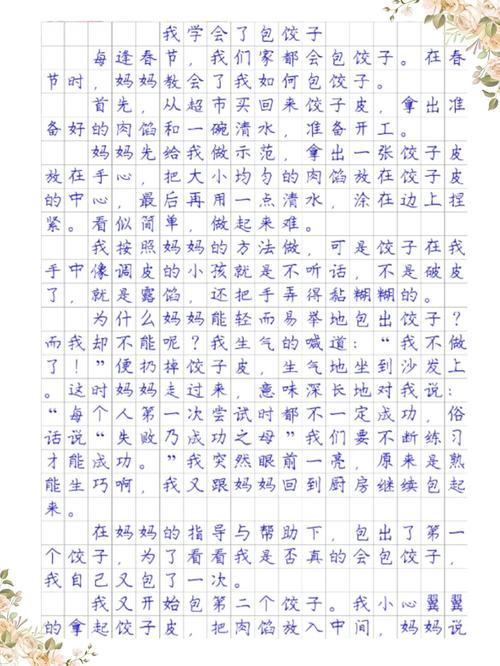 我学会了包饺子
每逢春节，我们家都会包饺子。在春
节时，妈妈教会了我如何包饺子。
首先，从超市买回来饺子皮，拿出准
备好的肉馅和一碗清水，准备开工。
妈妈先给我做示范，拿出一张饺子皮
放在手心，把大小均匀的肉馅放在饺子皮
的中心，最后再用一点清水，涂在边上捏
紧。看似简单，做起来难。
我按照妈妈的方法做，可是饺子在我
手中像调皮的小孩就是不听话，不是破皮
了，就是露馅，还把手弄得黏糊糊的。
为什么妈妈能轻而易举地包出饺子？
而我却不能呢？我生气的喊道：“我不做
了！”便扔掉饺子皮，生气地坐到沙发上
。这时妈妈走过来，意味深长地对我说：
“每个人第一次尝试时都不一定成功，俗
话说“失败乃成功之母”我们要不断练习
才能成功。”我突然眼前一亮，原来是熟
能生巧啊，我又跟妈妈回到厨房继续包起
来。
在妈妈的指导与帮助下，包出了第一
个饺子，为了看看我是否真的会包饺子，
我自己又包了一次。
我又开始包第二个饺子。我小心翼翼
的拿起饺子皮，把肉馅放入中间，妈妈说